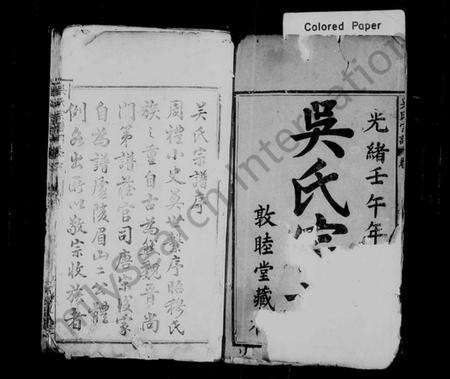 Colored Paper
光緒壬午年
吳氏宗
敦睦堂藏
吳氏宗譜序
周禮小史奠世系序昭穆氏
族之重自古為然魏晉尚
門第譜
官司唐宋後家
自為譜廬陵眉山二
體
例各出所以敬宗收族者
FamilySearch International